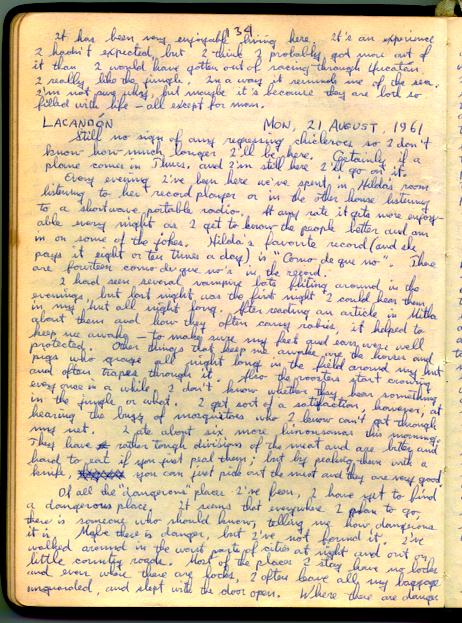 134
It has been very enjoyable living here. It's an experience
I hadn't expected, but I think I probably got more out of
it than I would have gotten out of racing through Yucatán.
I really like the jungle. In a way it reminds me of the sea.
I'm not sure why, but maybe it's because they are both so
filled with life – all except for man.
LACANDÓN MON, 21 AUGUST, 1961
Still no sign of any regressing chicleros so I don't
know how much longer I'll be here. Certainly if a
plane comes in Thurs. and I'm still here I'll go on it.
Every evening I've been here we've spent in Hilda's room
listening to her record player or in the other house listening
to a shortwave portable radio. At any rate it gets more enjoy-
able every night as I get to know the people better and am
in on some of the jokes. Hilda's favorite record (and she
plays it eight or ten times a day) is "Como de que no". There
are fourteen como de que no's in the record.
I had seen several vampire bats flitting around in the
evenings, but last night was the first night I could hear them
in my hut all night long. After reading an article in Mitla
about them and how they often carry rabies, it helped to
keep me awake – to make sure my feet and ears were well
protected. Other things that keep me awake are the horses and
pigs who graze all night long in the field around my hut
and often traipse through it. Also the roosters start crowing
every once in a while, I don't know whether they hear something
in the jungle or what. I get sort of a satisfaction, however, at
hearing the buzz of mosquitos who I know can't get through
my net. I ate about six more
They have rather tough divisions of the meat and are bitter and
hard to eat if you just peal them; but by pealing them with a
knife, you can just pick out the meat and they are very good.
Of all the "dangerous" places I've been, I have yet to find
a dangerous place. It seems that everywhere I plan to go,
there is someone who should know, telling me how dangerous
it is. Maybe there is danger, but I've not found it. I've
walked around in the worst parts of cities at night and out on
little country roads. Most of the places I stay have no locks
and even when there are locks, I often leave all my baggage
unguarded, and slept with the door open. Where there are danger